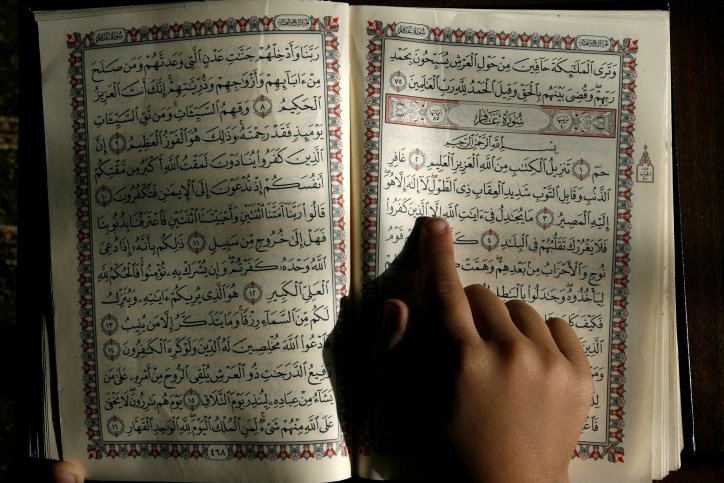 الجزء الرابع والعشرون
سورة غافر
وَتَرَى ٱلْمَلَٰٓئِكَةَ حَآفِّينَ مِنْ حَوْلِ ٱلْعَرْشِ يُسَبِّحُونَ بِحَمْدِ
رَبِّهِمْ وَقُضِىَ بَيْنَهُم بِٱلْحَقِّ وَقِيلَ ٱلْحَمْدُ لِلَّهِ رَبِّ ٱلْعَٰلَمِينَ ٧٥
سُورَةُ غَافِرٍ
بِسْمِ ٱللَّهِ ٱلرَّحْمَٰنِ ٱلرَّحِيمِ
حمٓ ١ تَنزِيلُ ٱلْكِتَٰبِ مِنَ ٱللَّهِ ٱلْعَزِيزِ ٱلْعَلِيمِ ٢ غَافِرِ
ٱلذَّنۢبِ وَقَابِلِ ٱلتَّوْبِ شَدِيدِ ٱلْعِقَابِ ذِى ٱلطَّوْلِ لَآ إِلَٰهَ إِلَّا هُوَ
إِلَيْهِ ٱلْمَصِيرُ ٣ مَا يُجَٰدِلُ فِىٓ ءَايَٰتِ ٱللَّهِ إِلَّا ٱلَّذِينَ كَفَرُوا۟
فَلَا يَغْرُرْكَ تَقَلُّبُهُمْ فِى ٱلْبِلَٰدِ ٤ قَوْمُ
نُوحٍ وَٱلْأَحْزَابُ مِنۢ بَعْدِهِمْ وَهَمَّتْ
لِيَأْخُذُوهُ وَجَٰدَلُوا۟ بِٱلْبَٰطِلِ
فَكَيْفَ كَانَ
ٱلَّذِينَ
وَمَنْ
الجزء الرابع والعشرون
سورة غافر
رَبَّنَا وَأَدْخِلْهُمْ جَنَّٰتِ عَدْنٍ ٱلَّتِى وَعَدتَّهُمْ وَمَن صَلَحَ
مِنْ ءَابَآئِهِمْ وَأَزْوَٰجِهِمْ وَذُرِّيَّٰتِهِمْ إِنَّكَ أَنتَ ٱلْعَزِيزُ
ٱلْحَكِيمُ ٨ وَقِهِمُ ٱلسَّيِّـَٔاتِ وَمَن تَقِ ٱلسَّيِّـَٔاتِ
يَوْمَئِذٍ فَقَدْ رَحِمْتَهُۥ وَذَٰلِكَ هُوَ ٱلْفَوْزُ ٱلْعَظِيمُ ٩ إِنَّ
ٱلَّذِينَ كَفَرُوا۟ يُنَادَوْنَ لَمَقْتُ ٱللَّهِ أَكْبَرُ مِن مَّقْتِكُمْ
أَنفُسَكُمْ إِذْ تُدْعَوْنَ إِلَى ٱلْإِيمَٰنِ فَتَكْفُرُونَ ١٠
قَالُوا۟ رَبَّنَآ أَمَتَّنَا ٱثْنَتَيْنِ وَأَحْيَيْتَنَا ٱثْنَتَيْنِ فَٱعْتَرَفْنَا بِذُنُوبِنَا
فَهَلْ إِلَىٰ خُرُوجٍ مِّن سَبِيلٍ ١١ ذَٰلِكُم بِأَنَّهُۥٓ إِذَا دُعِىَ
ٱللَّهُ وَحْدَهُۥ كَفَرْتُمْ وَإِن يُشْرَكْ بِهِۦ تُؤْمِنُوا۟ فَٱلْحُكْمُ لِلَّهِ
ٱلْعَلِىِّ ٱلْكَبِيرِ ١٢ هُوَ ٱلَّذِى يُرِيكُمْ ءَايَٰتِهِۦ وَيُنَزِّلُ
لَكُم مِّنَ ٱلسَّمَآءِ رِزْقًا وَمَا يَتَذَكَّرُ إِلَّا مَن يُنِيبُ ١٣
فَٱدْعُوا۟ ٱللَّهَ مُخْلِصِينَ لَهُ ٱلدِّينَ وَلَوْ كَرِهَ ٱلْكَٰفِرُونَ ١٤
رَفِيعُ ٱلدَّرَجَٰتِ ذُو ٱلْعَرْشِ يُلْقِى ٱلرُّوحَ مِنْ أَمْرِهِۦ عَلَىٰ مَن
يَشَآءُ مِنْ عِبَادِهِۦ لِيُنذِرَ يَوْمَ ٱلتَّلَاقِ ١٥ يَوْمَ هُم بَٰرِزُونَ لَا يَخْفَىٰ
عَلَى ٱللَّهِ مِنْهُمْ شَىْءٌ لِّمَنِ ٱلْمُلْكُ ٱلْيَوْمَ لِلَّهِ ٱلْوَٰحِدِ ٱلْقَهَّارِ ١٦
٤٦٨